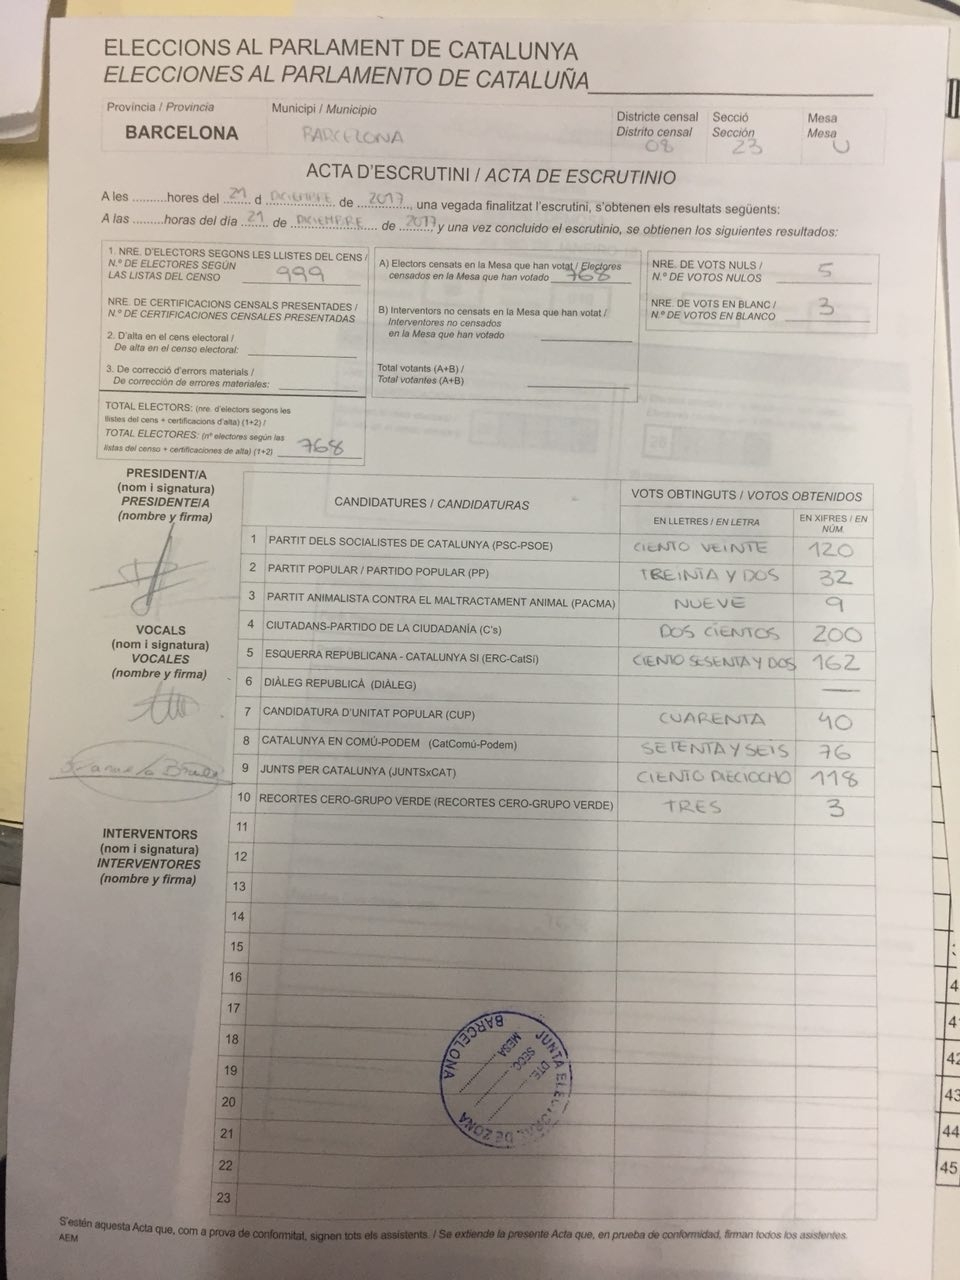 ELECCIONS AL PARLAMENT DE CATALUNYA
ELECCIONES AL PARLAMENTO DE CATALUÑA
Provincia / Provincia
BARCELONA
Municipi / Municipio
BARCELONA
Districte censal
Distrito censal
08
Secció
Sección
23
Mesa
Mesa
U
ACTA D'ESCRUTINI / ACTA DE ESCRUTINIO
A les .........hores del 21 d DICIEMPRE de 2017, una vegada finalitzat l'escrutini, s'obtenen els resultats següents:
A las .........horas del día 21 de DICIEMPRE de 2017 y una vez concluido el escrutinio, se obtienen los siguientes resultados:
1. NRE. D'ELECTORS SEGONS LES LLISTES DEL CENS /
N.º DE ELECTORES SEGÚN
LAS LISTAS DEL CENSO 999
NRE. DE CERTIFICACIONS CENSALS PRESENTADES /
N.º DE CERTIFICACIONES CENSALES PRESENTADAS
2. D'alta en el cens electoral /
De alta en el censo electoral:
3. De correcció d'errors materials /
De corrección de errores materiales:
TOTAL ELECTORS: (nre. d'electors segons les
llistes del cens + certificacions d'alta) (1+2) /
TOTAL ELECTORES: (nº electores según las
listas del censo + certificaciones de alta) (1+2) 768
A) Electors censats en la Mesa que han votat / Electores
censados en la Mesa que han votado 768
B) Interventors no censats en la Mesa que han votat /
Interventores no censados
en la Mesa que han votado
Total votants (A+B) /
Total votantes (A+B)
NRE. DE VOTS NULS /
N.º DE VOTOS NULOS 5
NRE. DE VOTS EN BLANC /
N.º DE VOTOS EN BLANCO 3
PRESIDENT/A
(nom i signatura)
PRESIDENTE/A
(nombre y firma)
VOCALS
(nom i signatura)
VOCALES
(nombre y firma)
INTERVENTORS
(nom i signatura)
INTERVENTORES
(nombre y firma)
CANDIDATURES / CANDIDATURAS
VOTS OBTINGUTS / VOTOS OBTENIDOS
EN LLETRES / EN LETRA
EN XIFRES / EN NÚM.
1 PARTIT DELS SOCIALISTES DE CATALUNYA (PSC-PSOE) CIENTO VEINTE 120
2 PARTIT POPULAR / PARTIDO POPULAR (PP) TREINTA Y DOS 32
3 PARTIT ANIMALISTA CONTRA EL MALTRACTAMENT ANIMAL (PACMA) NUEVE 9
4 CIUTADANS-PARTIDO DE LA CIUDADANÍA (C's) DOS CIENTOS 200
5 ESQUERRA REPUBLICANA - CATALUNYA SÍ (ERC-CatSí) CIENTO SESENTA Y DOS 162
6 DIÀLEG REPUBLICÀ (DIÀLEG) —
7 CANDIDATURA D'UNITAT POPULAR (CUP) CUARENTA 40
8 CATALUNYA EN COMÚ-PODEM (CatComú-Podem) SETENTA Y SEIS 76
9 JUNTS PER CATALUNYA (JUNTSxCAT) CIENTO DIECIOCHO 118
10 RECORTES CERO-GRUPO VERDE (RECORTES CERO-GRUPO VERDE) TRES 3
11
12
13
14
15
16
17
18
19
20
21
22
23
JUNTA ELECTORAL DE ZONA
BARCELONA
DTE.
SECC.
MESA
S'estén aquesta Acta que, com a prova de conformitat, signen tots els assistents. / Se extiende la presente Acta que, en prueba de conformidad, firman todos los asistentes.
AEM
42
43
44
45